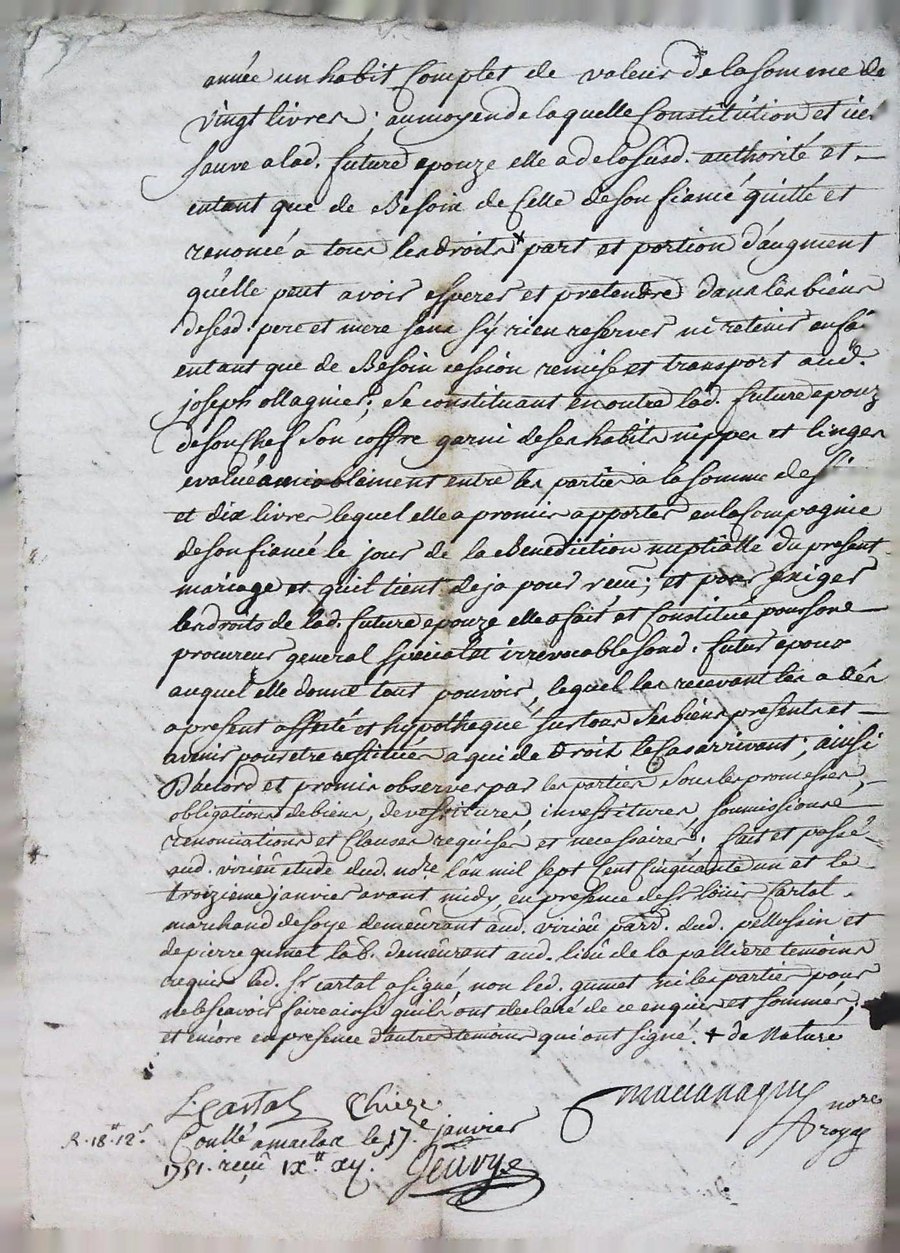 année un habit Complet de valeur de la somme de
vingt livres; au moyen de laquelle Constitution et
sauve a lad. future epouze elle a de la susd. authorité et
entant que de Besoin de Celle de son fiancé quitté et
renoncé a tous les droits + part et portion d'augment
qu'elle peut avoir esperer et pretendre dans les biens
de sesd. pere et mere sans s'y rien reserver ni retenir
entant que de Besoin cession remise et transport aud.
joseph Magnier; se constituant en outre lad. future epouz
de son Chef son coffre garni de ses habits nippes et linges
evalué amiablement entre les parties à la somme de
et dix livres lequel elle a promis apporter en la Compagnie
de son fiancé le jour de la Benediction nuptialle du present
mariage et qu'il tient deja pour receu; et pour exiger
les droits de lad. future epouze elle a fait et Constitué pour son
procureur general special et irrevocable sond. futur epoux
auquel elle donne tout pouvoir, lequel les recevant les a dés
apresent affecté et hypothequé sur tous ses biens presents et
avenir pour etre restitués a qui de Droit le Cas arrivant; ainsi
D'acord et promis observer par les parties sous les promesses,
obligations de biens, devestitures, investitures, soumissions
renonciations et Clauses requises et necessaires; fait et passé
aud. virieu etude dud. nore. l'an mil sept Cent Cinquante un et le
troizieme janvier avant midy en presence de sr. loüis Cartal
marchand de soye demeurant aud. virieu parr. dud. pellussin et
de pierre gumet lab. demeurant aud. lieu de la palliere temoins
requis led. sr. cartal a signé, non led. gumet ni les parties pour
ne le scavoir faire ainsi qu'ils ont declaré de ce enquis et sommés,
et encore en presence d'autre temoins qui ont signé. + de Nature
L Cartal Chieze nore
Royal
Conllé a maclas le 17e janvier
R. 18tt 12s
1751. receu ix tt xij.